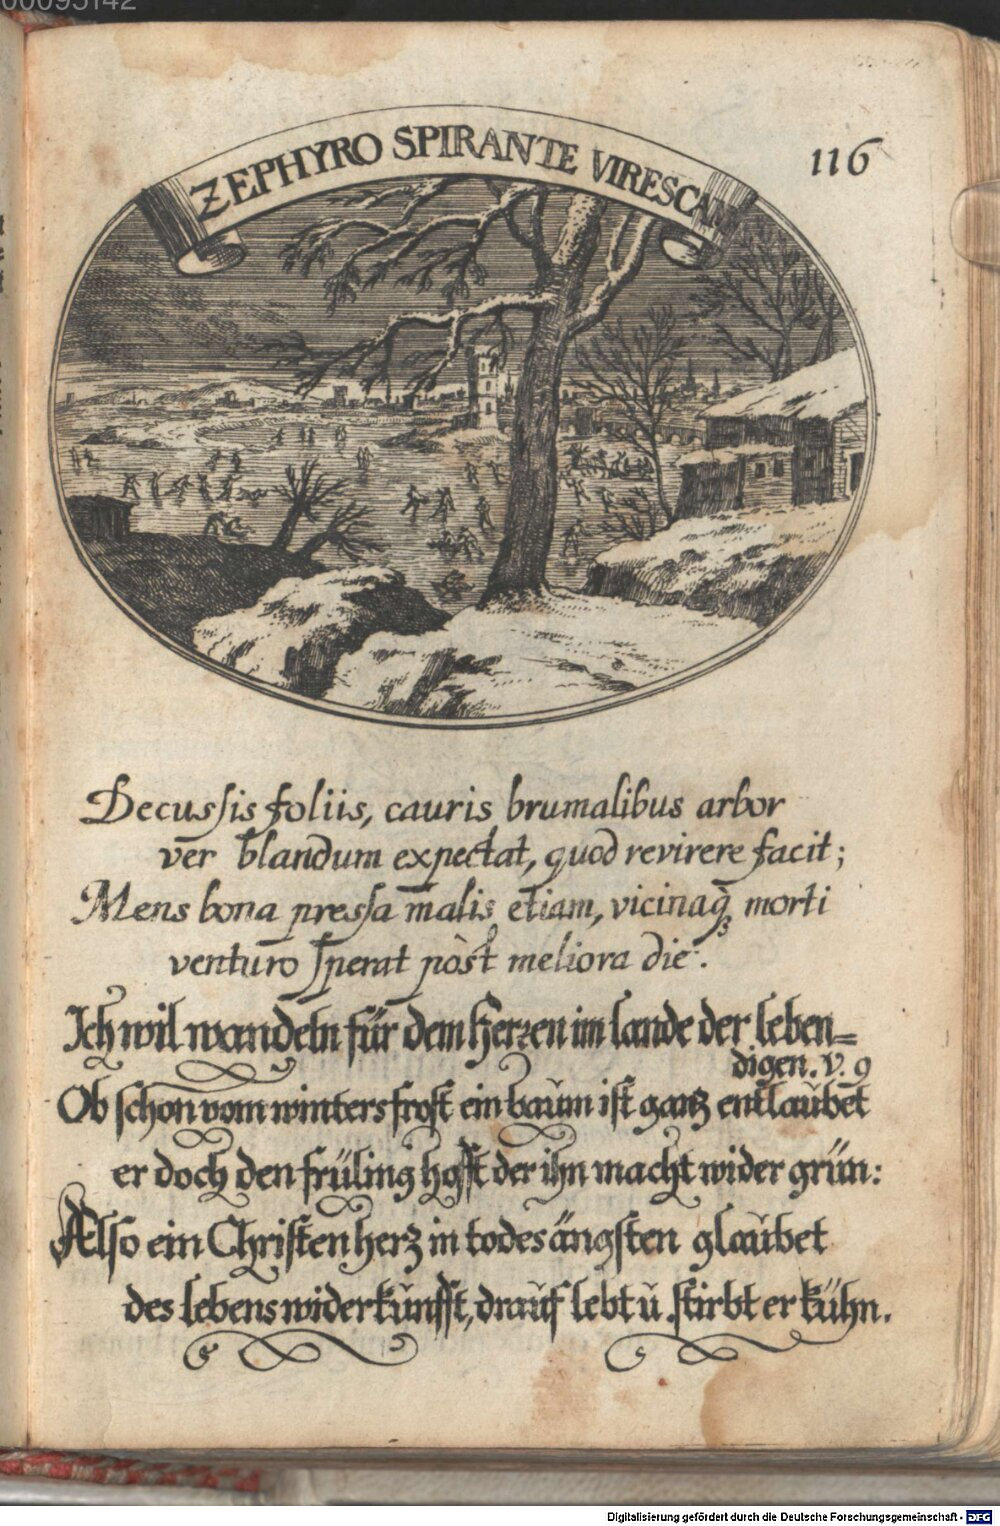 00095142
116
ZEPHYRO SPIRANTE VIRESCAM
Decussis foliis, cauris brumalibus arbor
ver blandum expectat, quod revirere facit;
Mens bona pressa malis etiam, vicinaqꝫ morti
venturo sperat pòst meliora die.
Ich wil wandeln für dem Herren im lande der leben=
digen. v. 9
Ob schon vom winters frost ein baŭm ist gantz entlaŭbet
er doch den früling hofft der ihn macht wider grün:
Also ein Christen herz in todes ängsten glaŭbet
des lebens widerkŭnfft, draŭf lebt ŭ. stirbt er kühn.
Digitalisierung gefördert durch die Deutsche Forschungsgemeinschaft - DFG